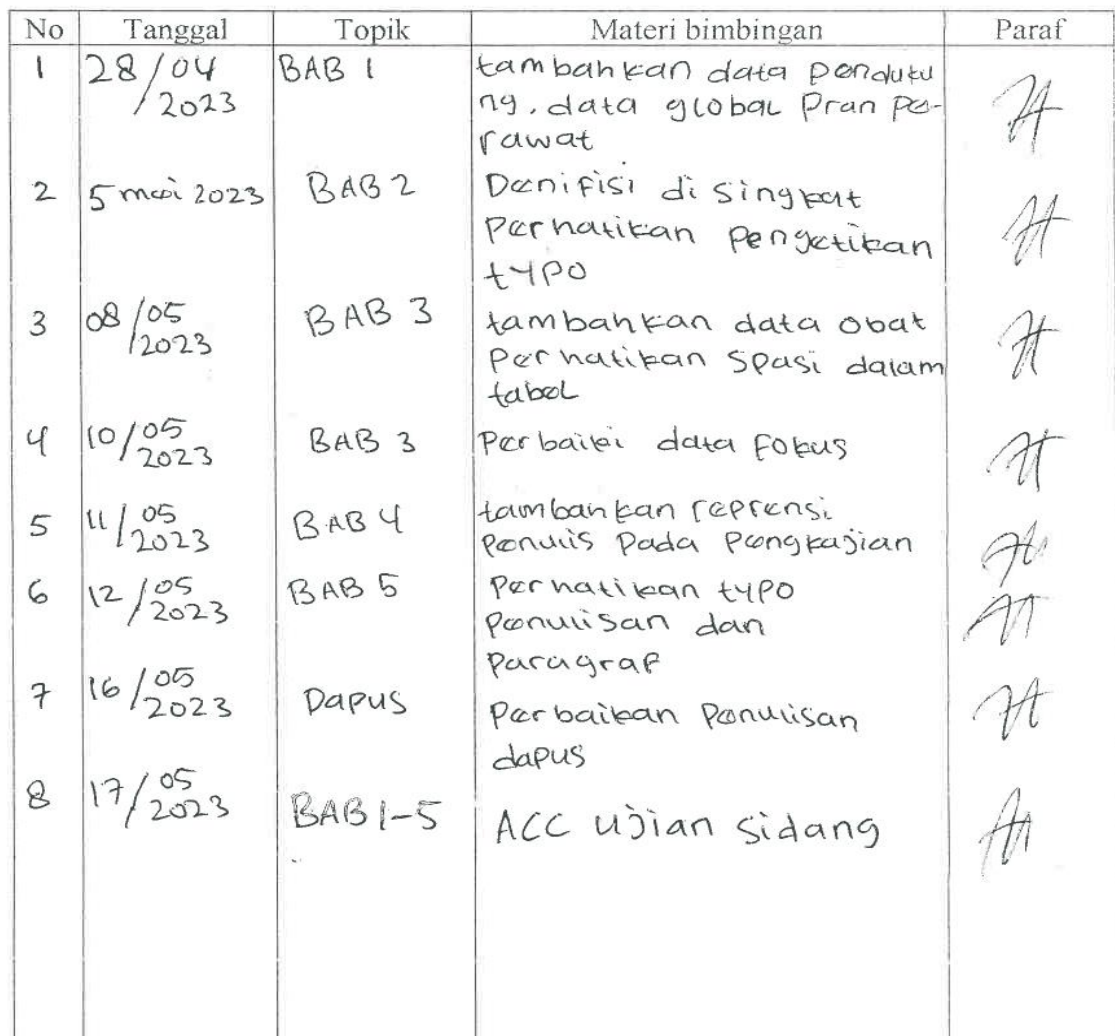 No Tanggal Topik Materi bimbingan Paraf
1 28/04 BAB 1 tambahkan data penduku
2023 ng, data global Pran pe-
rawat
2 5 mei 2023 BAB 2 Denifisi di singkat
Perhatikan pengetikan
typo
3 08/05 BAB 3 tambahkan data obat
2023 Perhatikan spasi dalam
tabel
4 10/05 BAB 3 Perbaiki data fokus
2023
5 11/05 BAB 4 tambahkan reprensi
2023 penulis pada pengkajian
6 12/05 BAB 5 Perhatikan typo
2023 penulisan dan
paragraf
7 16/05 Dapus Perbaikan Penulisan
2023 dapus
8 17/05 BAB 1-5 ACC Ujian sidang
2023